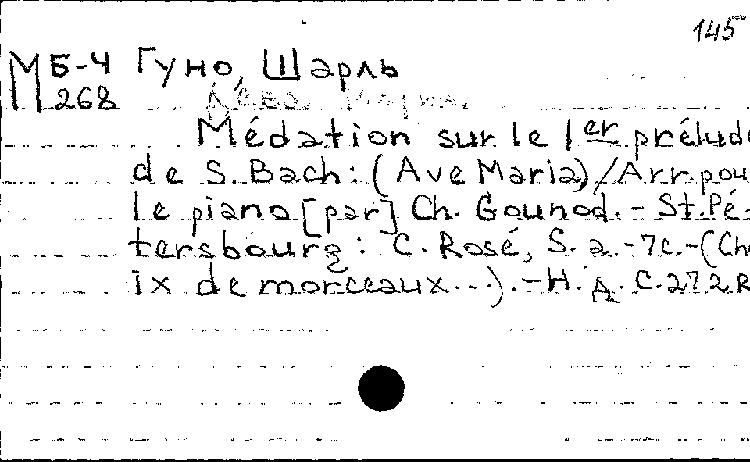 145
М Б-4 Гуно, Шарль
268
Médation sur le 1er prélude
de S. Bach: (Ave Maria) / Arr. pou
le piano [par] Ch. Gounod. - St. Pé-
tersbourg: C. Rosé, S. a. - 7c. - (Cho
ix de morceaux...). - Н. д. C. 272 R